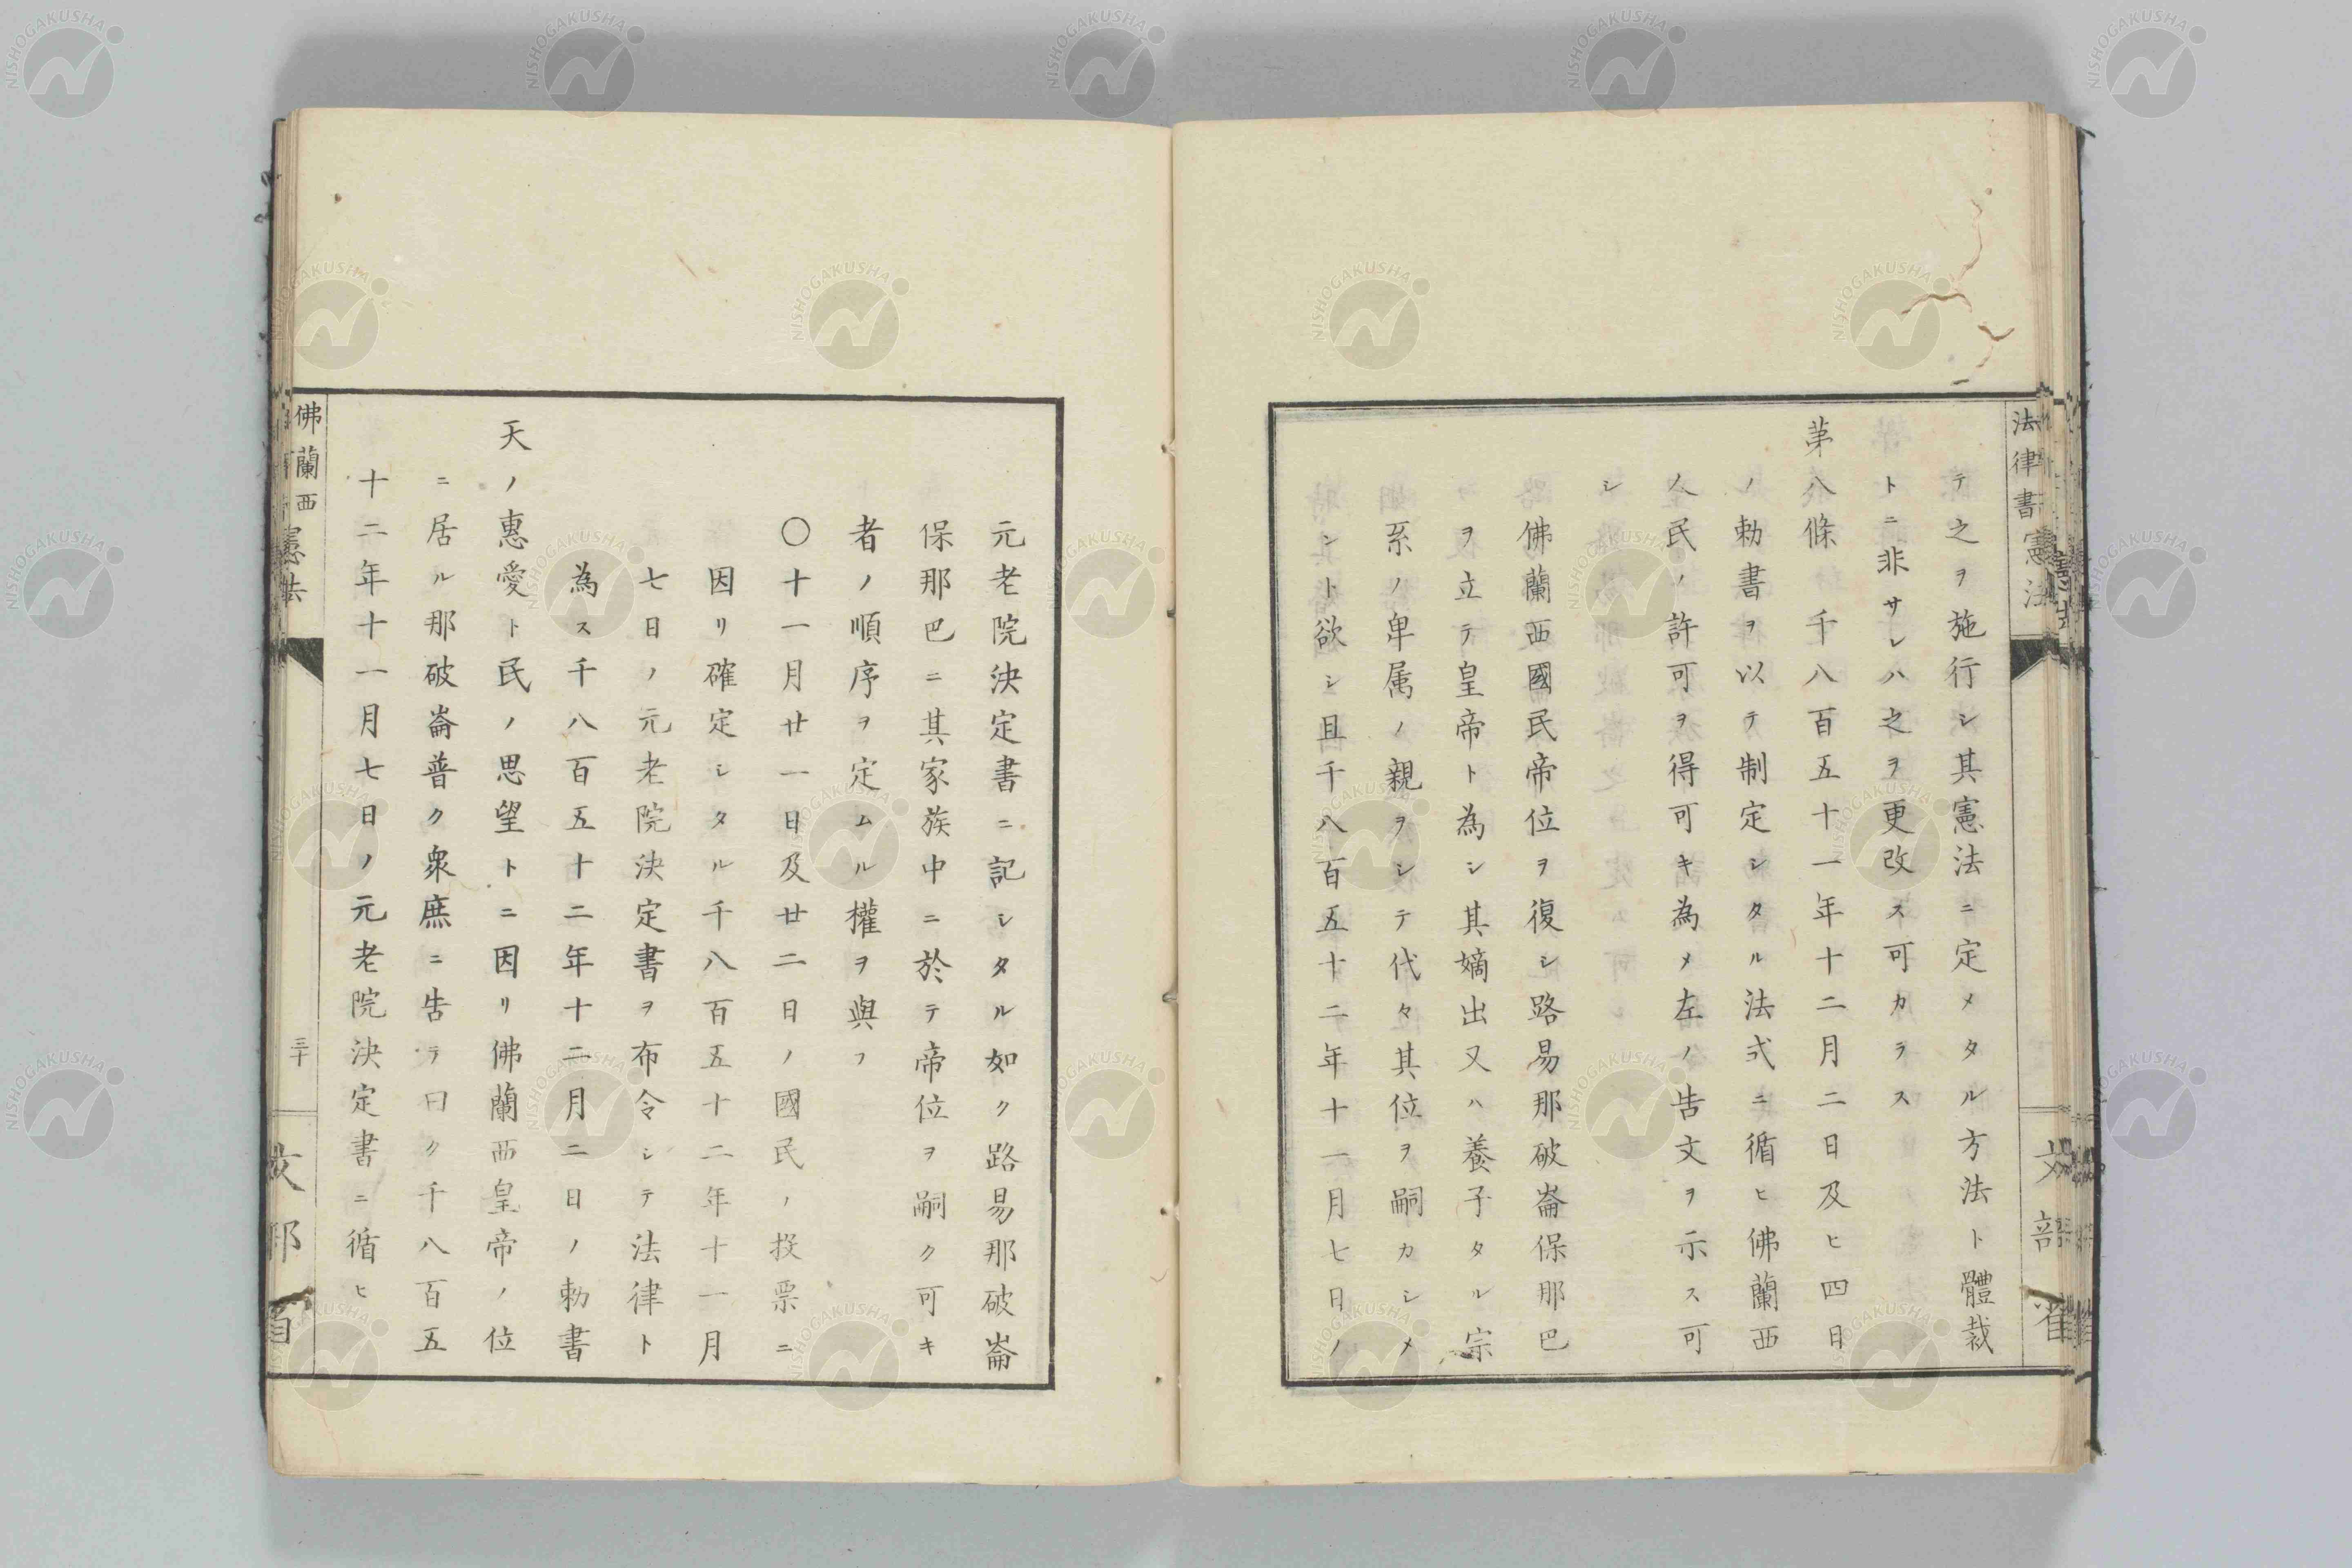 法律書 憲法
テ之ヲ施行シ其憲法ニ定メタル方法ト體裁
トニ非サレハ之ヲ更改ス可カラス
第八條 千八百五十一年十二月二日及ヒ四日
ノ勅書ヲ以テ制定シタル法式ニ循ヒ佛蘭西
人民ノ許可ヲ得可キ為メ左ノ告文ヲ示ス可
シ
佛蘭西國民帝位ヲ復シ路易那破崙保那巴
ヲ立テ皇帝ト為シ其嫡出又ハ養子タル宗
系ノ卑属ノ親ヲシテ代々其位ヲ嗣カシメ
ント欲シ且千八百五十二年十一月七日ノ
元老院決定書ニ記シタル如ク路易那破崙
保那巴ニ其家族中ニ於テ帝位ヲ嗣ク可キ
者ノ順序ヲ定ムル權ヲ與フ
〇十一月廿一日及廿二日ノ國民ノ投票ニ
因リ確定シタル千八百五十二年十一月
七日ノ元老院決定書ヲ布令シテ法律ト
為ス千八百五十二年十二月二日ノ勅書
天ノ惠愛ト民ノ思望トニ因リ佛蘭西皇帝ノ位
ニ居ル那破崙普ク衆庶ニ告テ曰ク千八百五
十二年十一月七日ノ元老院決定書ニ循ヒ
佛蘭西憲法
三十
文部省
NISHOGAKUSHA